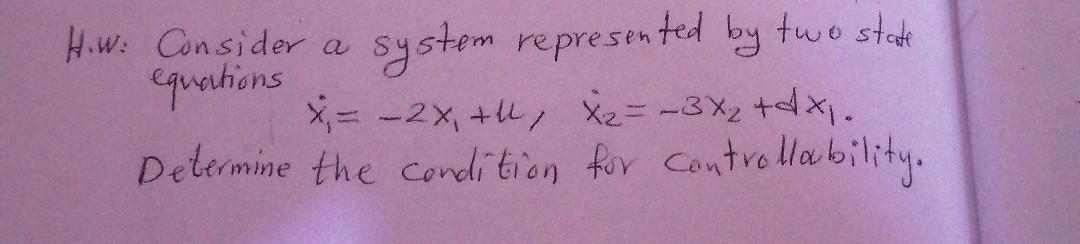 H.w: Consider a system represented by two state
equations
ẋ₁ = -2x₁ + u, ẋ₂ = -3x₂ + dx₁.
Determine the condition for controllability.